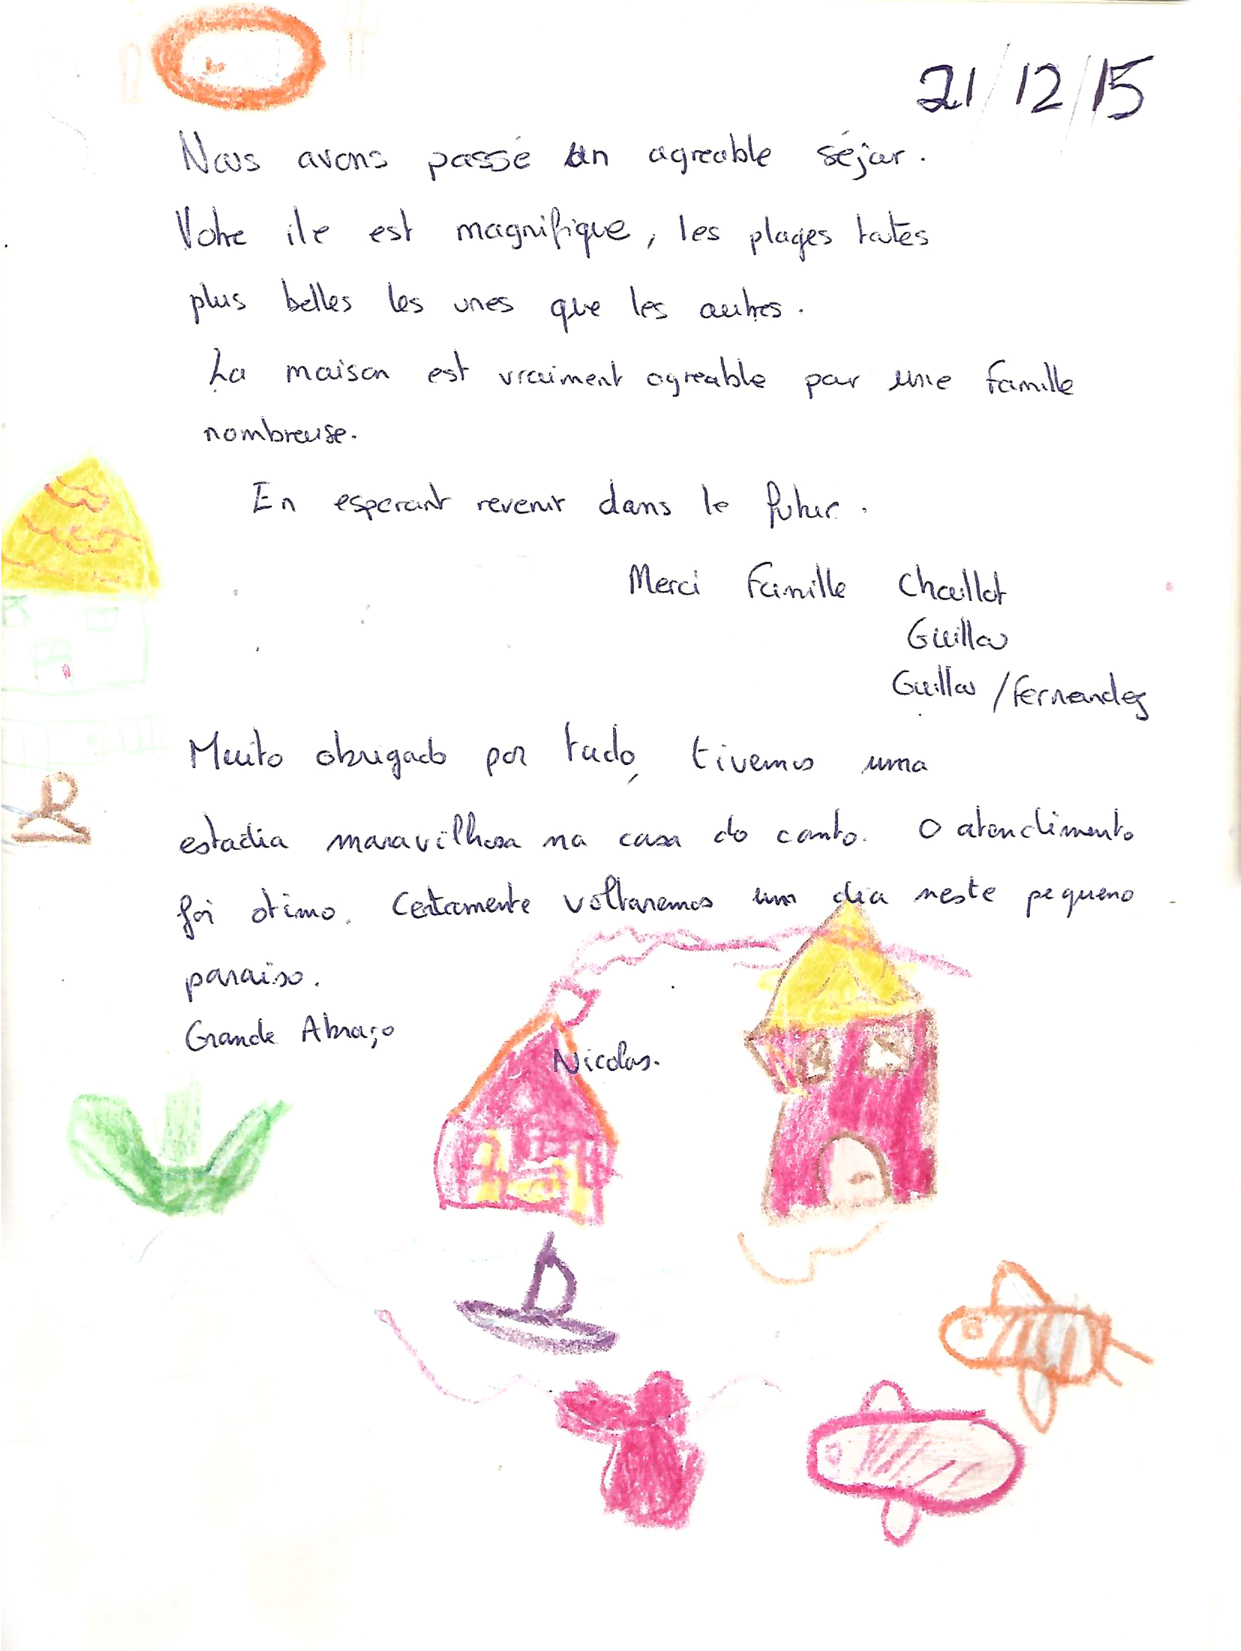 21/12/15
Nous avons passé un agreable séjour.
Votre ile est magnifique, les plages toutes
plus belles les unes que les autres.
La maison est vraiment agreable pour une famille
nombreuse.
En esperant revenir dans le futur.
Merci Famille Chaillot
Guillou
Guillou / Fernandez
Muito obrigado por tudo, tivemos uma
estadia maravilhosa na casa do canto. O atendimento
foi otimo. Certamente voltaremos um dia neste pequeno
paraiso.
Grande Abraço
Nicolas.